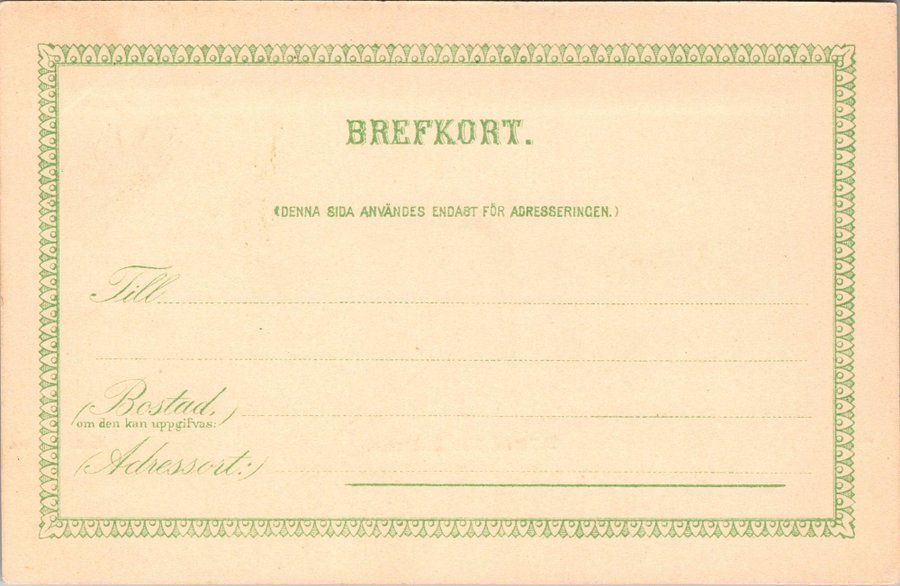 BREFKORT.
(DENNA SIDA ANVÄNDES ENDAST FÖR ADRESSERINGEN.)
Till
(Bostad,)
om den kan uppgifvas:
(Adressort:)